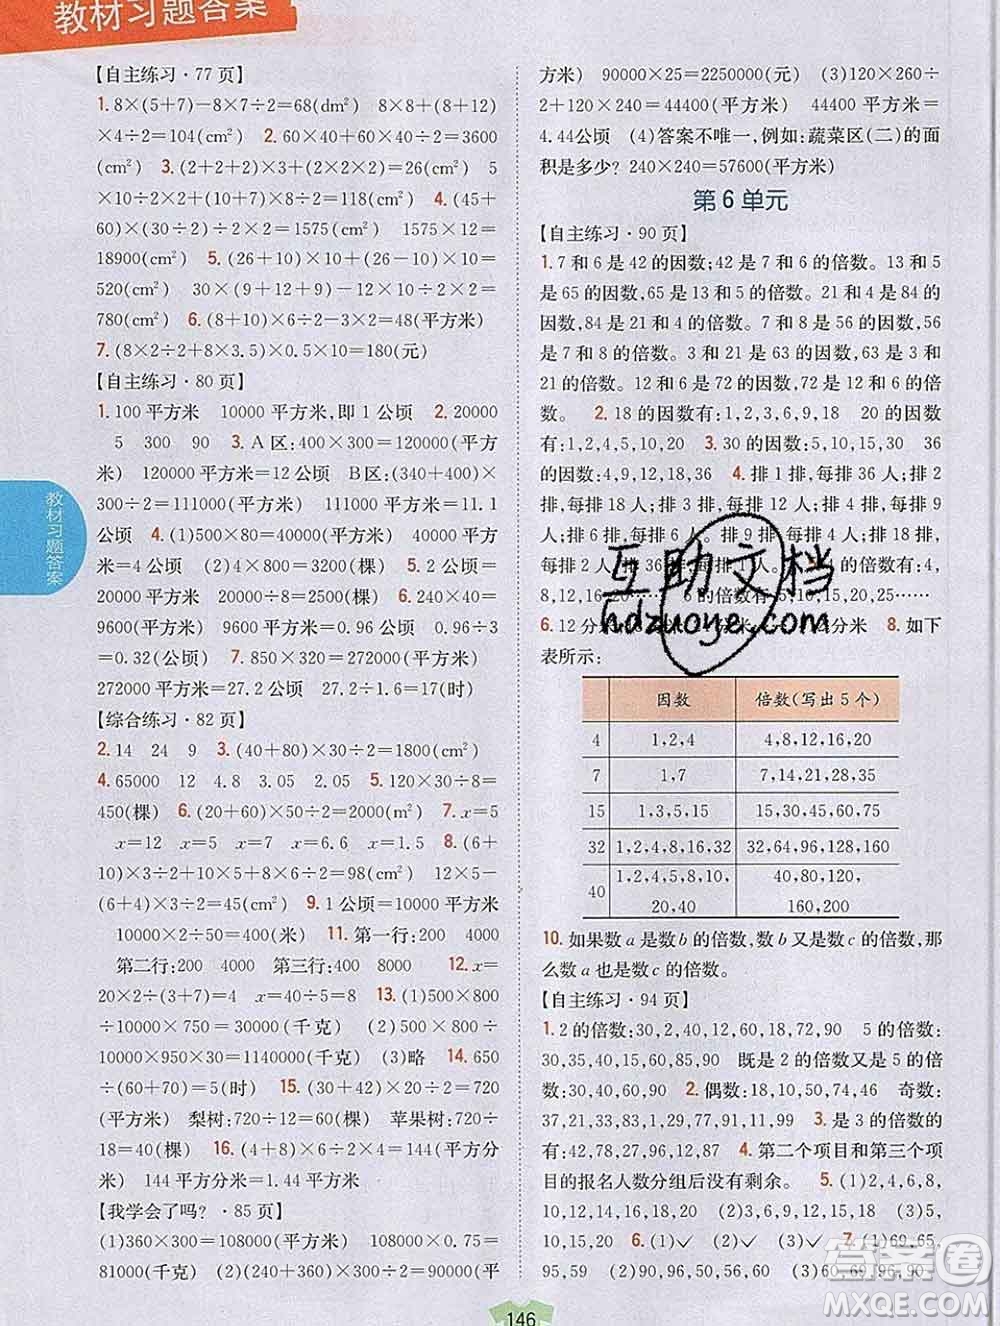 教材习题答案
【自主练习·77页】
1.8×(5+7)-8×7÷2=68(dm²) 8×8+(8+12)
×4÷2=104(cm²) 2.60×40+40×60÷2=3600
(cm²) 3.(2+2+2)×3+(2×2×2)=26(cm²) 5
×10×2+(9-5)×(10-7)+9×8÷2=118(cm²) 4.(45+
60)×(30÷2)÷2×2=1575(cm²) 1575×12=
18900(cm²) 5.(26+10)×10+(26-10)×10=
520(cm²) 30×(9+21)÷2+(9+13)×30÷2=
780(cm²) 6.(8+10)×6÷2-3×2=48(平方米)
7.(8×2÷2+8×3.5)×0.5×10=180(元)
【自主练习·80页】
1.100平方米 10000平方米,即1公顷 2.20000
5 300 90 3.A区:400×300=120000(平方
米) 120000平方米=12公顷 B区:(340+400)×
300÷2=111000(平方米) 111000平方米=11.1
公顷 4.(1)500×80=40000(平方米) 40000平方
米=4公顷 (2)4×200=800(棵) 5.200×200÷2
=20000(平方米) 20000÷8=2500(棵) 6.240×40=
9600(平方米) 9600平方米=0.96公顷 0.96÷3
=0.32(公顷) 7.850×320=272000(平方米)
272000平方米=27.2公顷 27.2÷1.6=17(时)
【综合练习·82页】
2.14 24 9 3.(40+80)×30÷2=1800(cm²)
4.65000 12 4.8 3.05 2.05 5.120×30÷8=
450(棵) 6.(20+60)×50÷2=2000(m²) 7.x=5
x=12 x=5 x=6 x=11 x=12 8.(6+
10)×3÷2+(10+15)×6÷2=98(cm²) 5×5-
(6+4)×3÷2=45(cm²) 9.1公顷=10000平方米
10000×2÷50=400(米) 11.第一行:200 4000
第二行:200 4000 第三行:400 8000 12.x=
20×2÷(3+7)=4 x=40÷2×2÷5=8 13.(1)500×800÷
10000×750=30000(千克) (2)500×800÷
10000×950×30=1140000(千克) (3)略 14.650
÷(60+70)=5(时) 15.(12+24)×40÷2=720
(平方米) 梨树:720÷12=60(棵) 苹果树:720÷
18=40(棵) 16.(4+8)×6÷2×4=144(平方分
米) 144平方分米=1.44平方米
【我学会了吗?·85页】
(1)360×300=108000(平方米) 108000×0.75=
81000(千克) (2)(240+360)×300÷2=90000(平
方米) 90000×25=2250000(千克) (3)120×260÷
2+120×240=44400(平方米) 44400平方米=
4.44公顷 (4)答案不唯一,例如:蔬菜区(二)的面
积是多少?240×240=57600(平方米)
第6单元
【自主练习·90页】
1.7和6是42的因数;42是7和6的倍数。13和5
是65的因数,65是13和5的倍数。21和4是84的
因数,84是21和4的倍数。7和8是56的因数,56
是7和8的倍数。3和21是63的因数,63是3和
21的倍数。12和6是72的因数,72是12和6的倍
数。 2.18的因数有:1,2,3,6,9,18 20的因数有
有:1,2,4,5,10,20 3.5的倍数:5,10,15,30 36
的因数:4,9,12,18,36 4.排1排,每排36人;排2
排,每排18人;排3排,每排12人;排4排,每排9
人;排6排,每排6人;排9排,每排4人
8,12,16,20…… 5的倍数有:5,10,15,20,25……
6.12分米 8.如下
表所示:
因数 倍数(写出5个)
4 1,2,4 4,8,12,16,20
7 1,7 7,14,21,28,35
15 1,3,5,15 15,30,45,60,75
32 1,2,4,8,16,32 32,64,96,128,160
40 1,2,4,5,8,10,20,40 40,80,120,160,200
10.如果数a是数b的倍数,数b又是数c的倍数,那
么数a也是数c的倍数。
【自主练习·94页】
1.2的倍数:30,2,40,12,60,18,72,90 5的倍数:
30,35,40,15,60,85,90 既是2的倍数又是5的倍
数:30,40,60,90 2.偶数:18,10,50,24 奇数:
37,21,83,1,29,77,91,11,99 3.是3的倍数的
有:42,78,27,96,12,87 4.第二个项目和第三个项目
的报名人数分组后没有剩余。 5.(1)2,4,6,8,
10,12,14,16,18,20 (2)3,6,9,12,15,18 (3)5,
10,15,20 6.(1)✓ (2)✓ (3)✓ 7.(1)69,65,
95,59
146
教材习题答案
互助文档
hdzuoye.com
答案圈
MXQE.COM